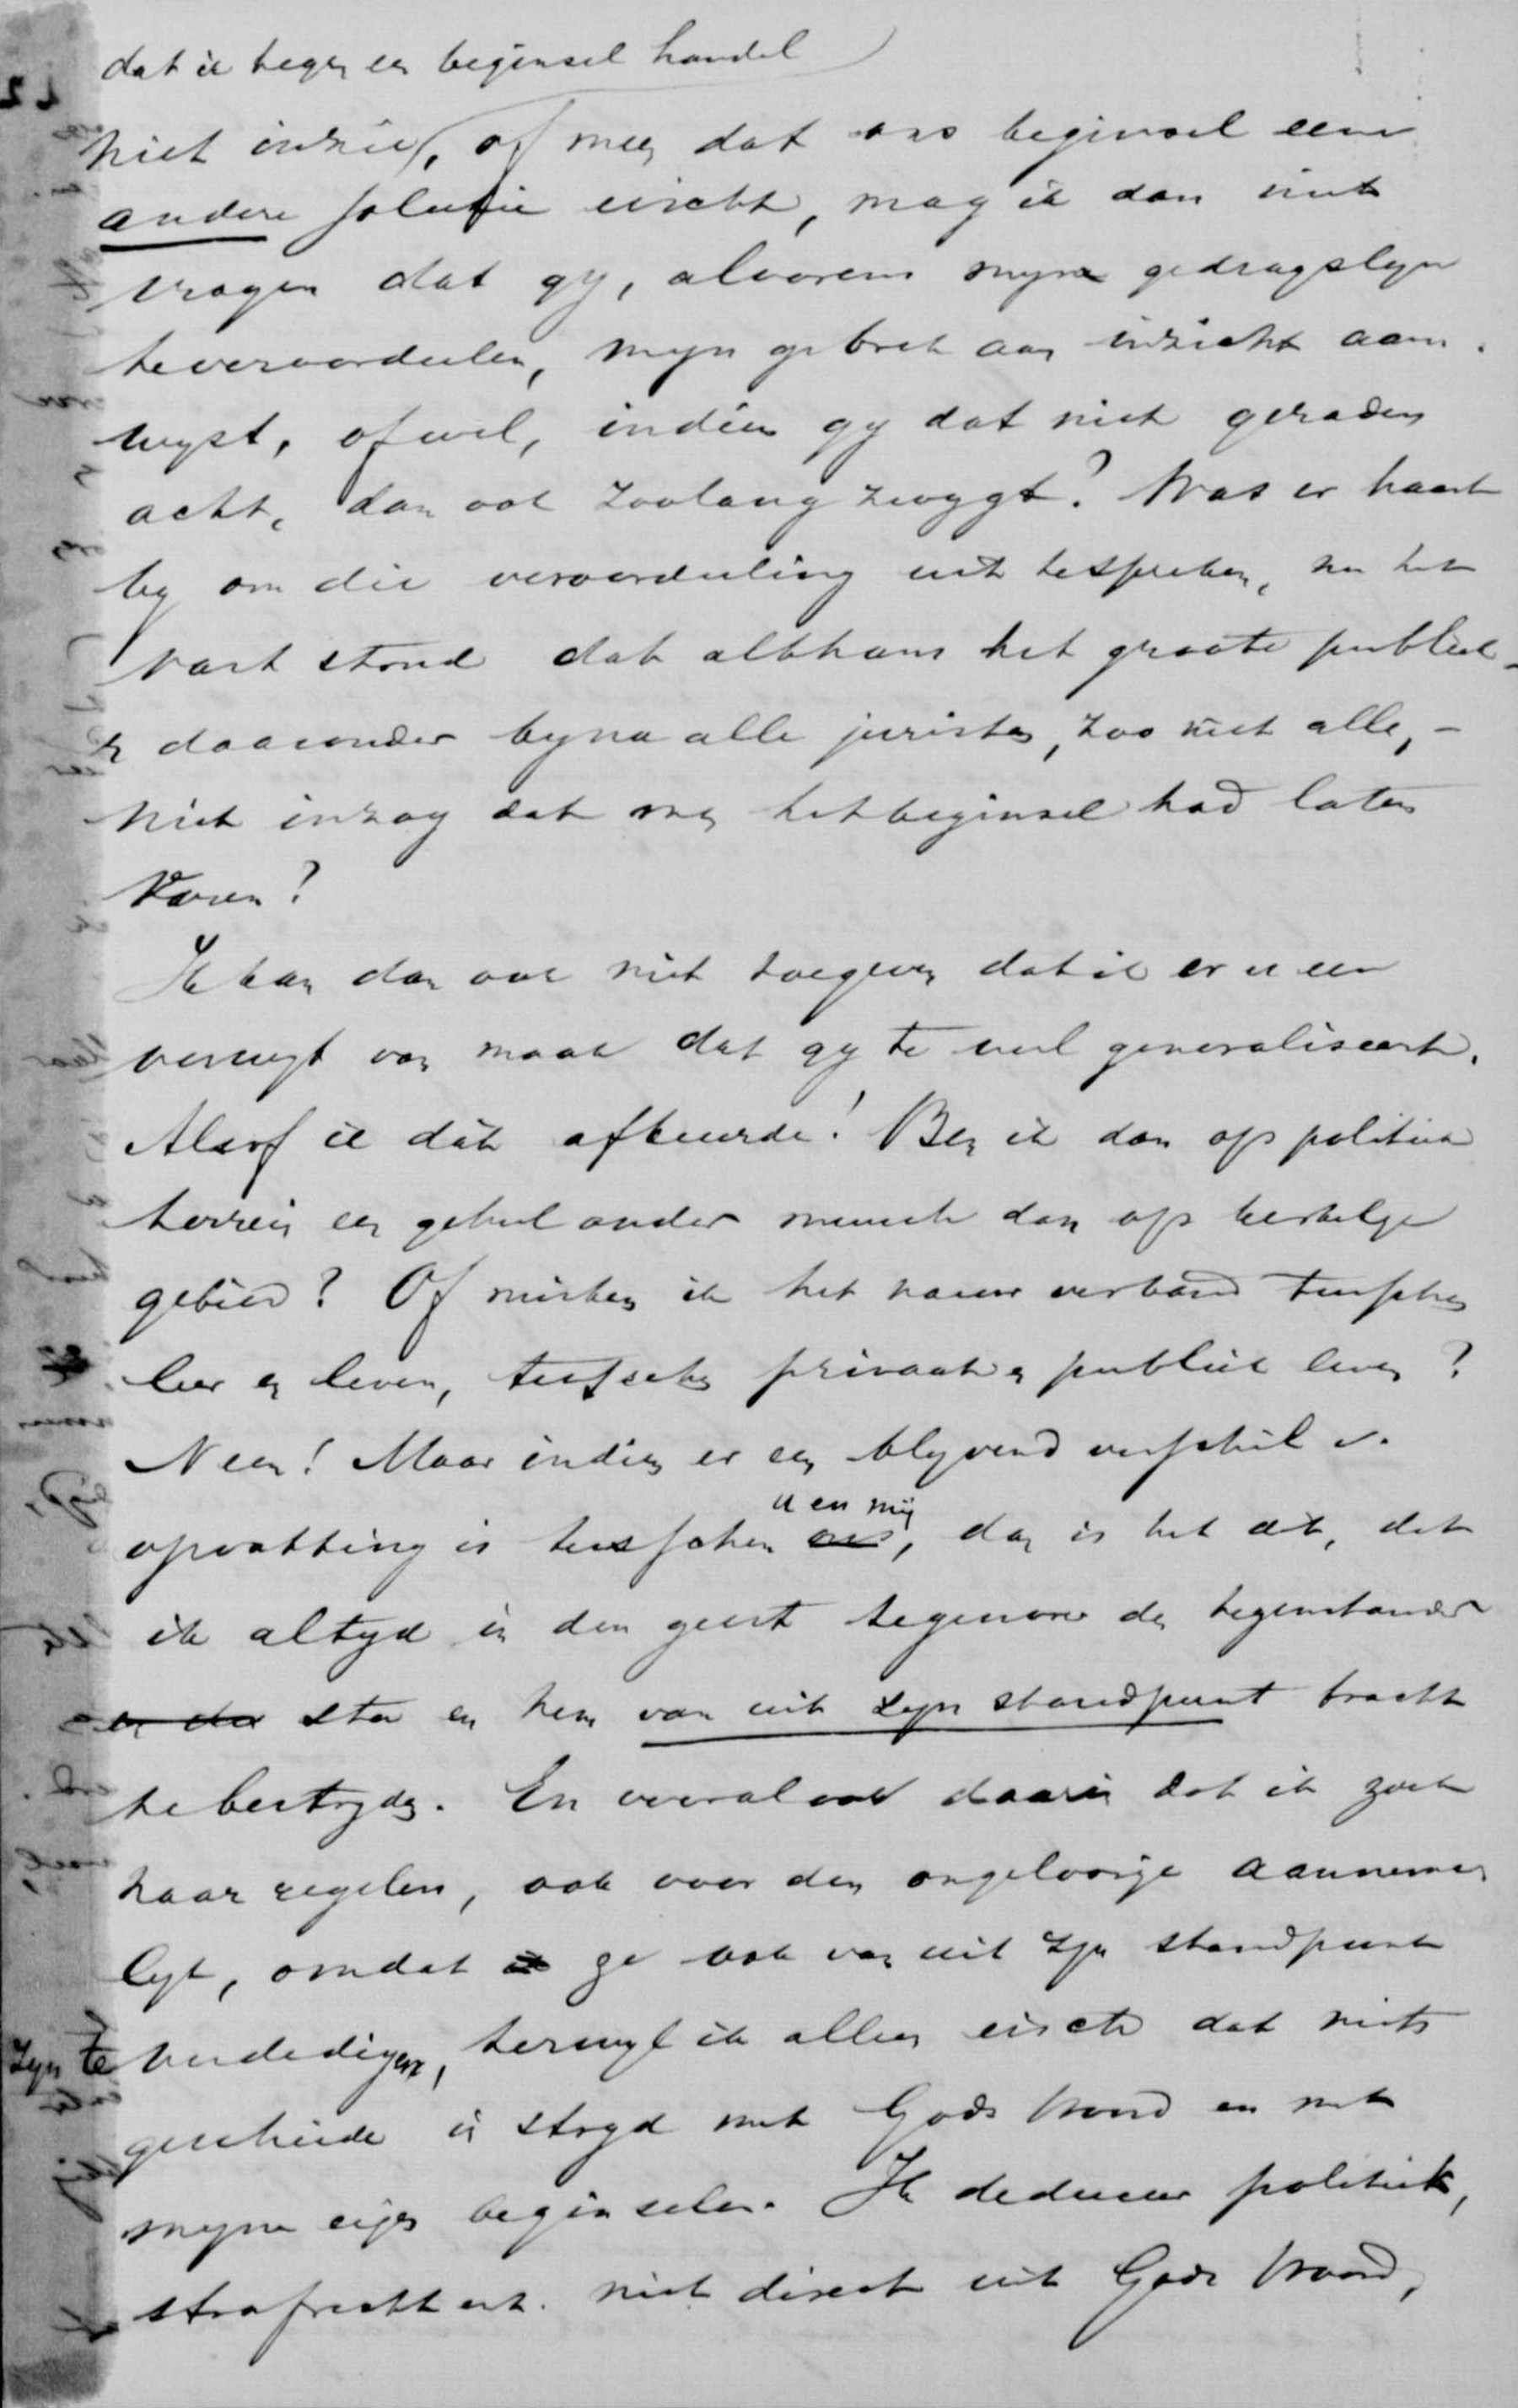 dat ik tegen een beginsel handel
niet inzie, of meen dat ons beginsel eene
andere solutie eischt, mag ik dan niet
vragen dat gy, alvorens myne gedragslyn
te veroordeelen, myn gebrek aan inzicht aan-
wyst, ofwel, indien gy dat niet geraden
acht, dan ook zoolang zwygt? Was er haast
by om die veroordeeling uit te spreken, nu het
vast stond dat althans het groote publiek -
en daaronder byna alle juristen, zoo niet alle, -
niet inzag dat men het beginsel had laten
varen?
Ik kan dan ook niet toegeven dat ik er u een
verwyt van maak dat gy te veel generaliseert.
Alsof ik dát afkeurde! Ben ik dan op politiek
terrein een geheel ander mensch dan op kerkelyk
gebied? Of misken ik het nauw verband tusschen
leer en leven, tusschen privaat en publiek leven?
Neen! Maar indien er een blyvend verschil v.
opvatting is tusschen ons u en mij, dan is het dit, dat
ik altyd in den geest tegenover den tegenstander
sta en hem van uit zyn standpunt tracht
te bestryden. En vooral ook daarin dat ik zoek
naar regelen, ook voor den ongeloovige aanneme-
lyk, omdat ze ook van uit zyn standpunt
zyn te verdedigen, terwyl ik alleen eisch dat niets
geschiede in stryd met Gods Woord en met
myne eigen beginselen. Ik deduceer politiek,
strafrecht enz. niet direct uit Gods Woord,